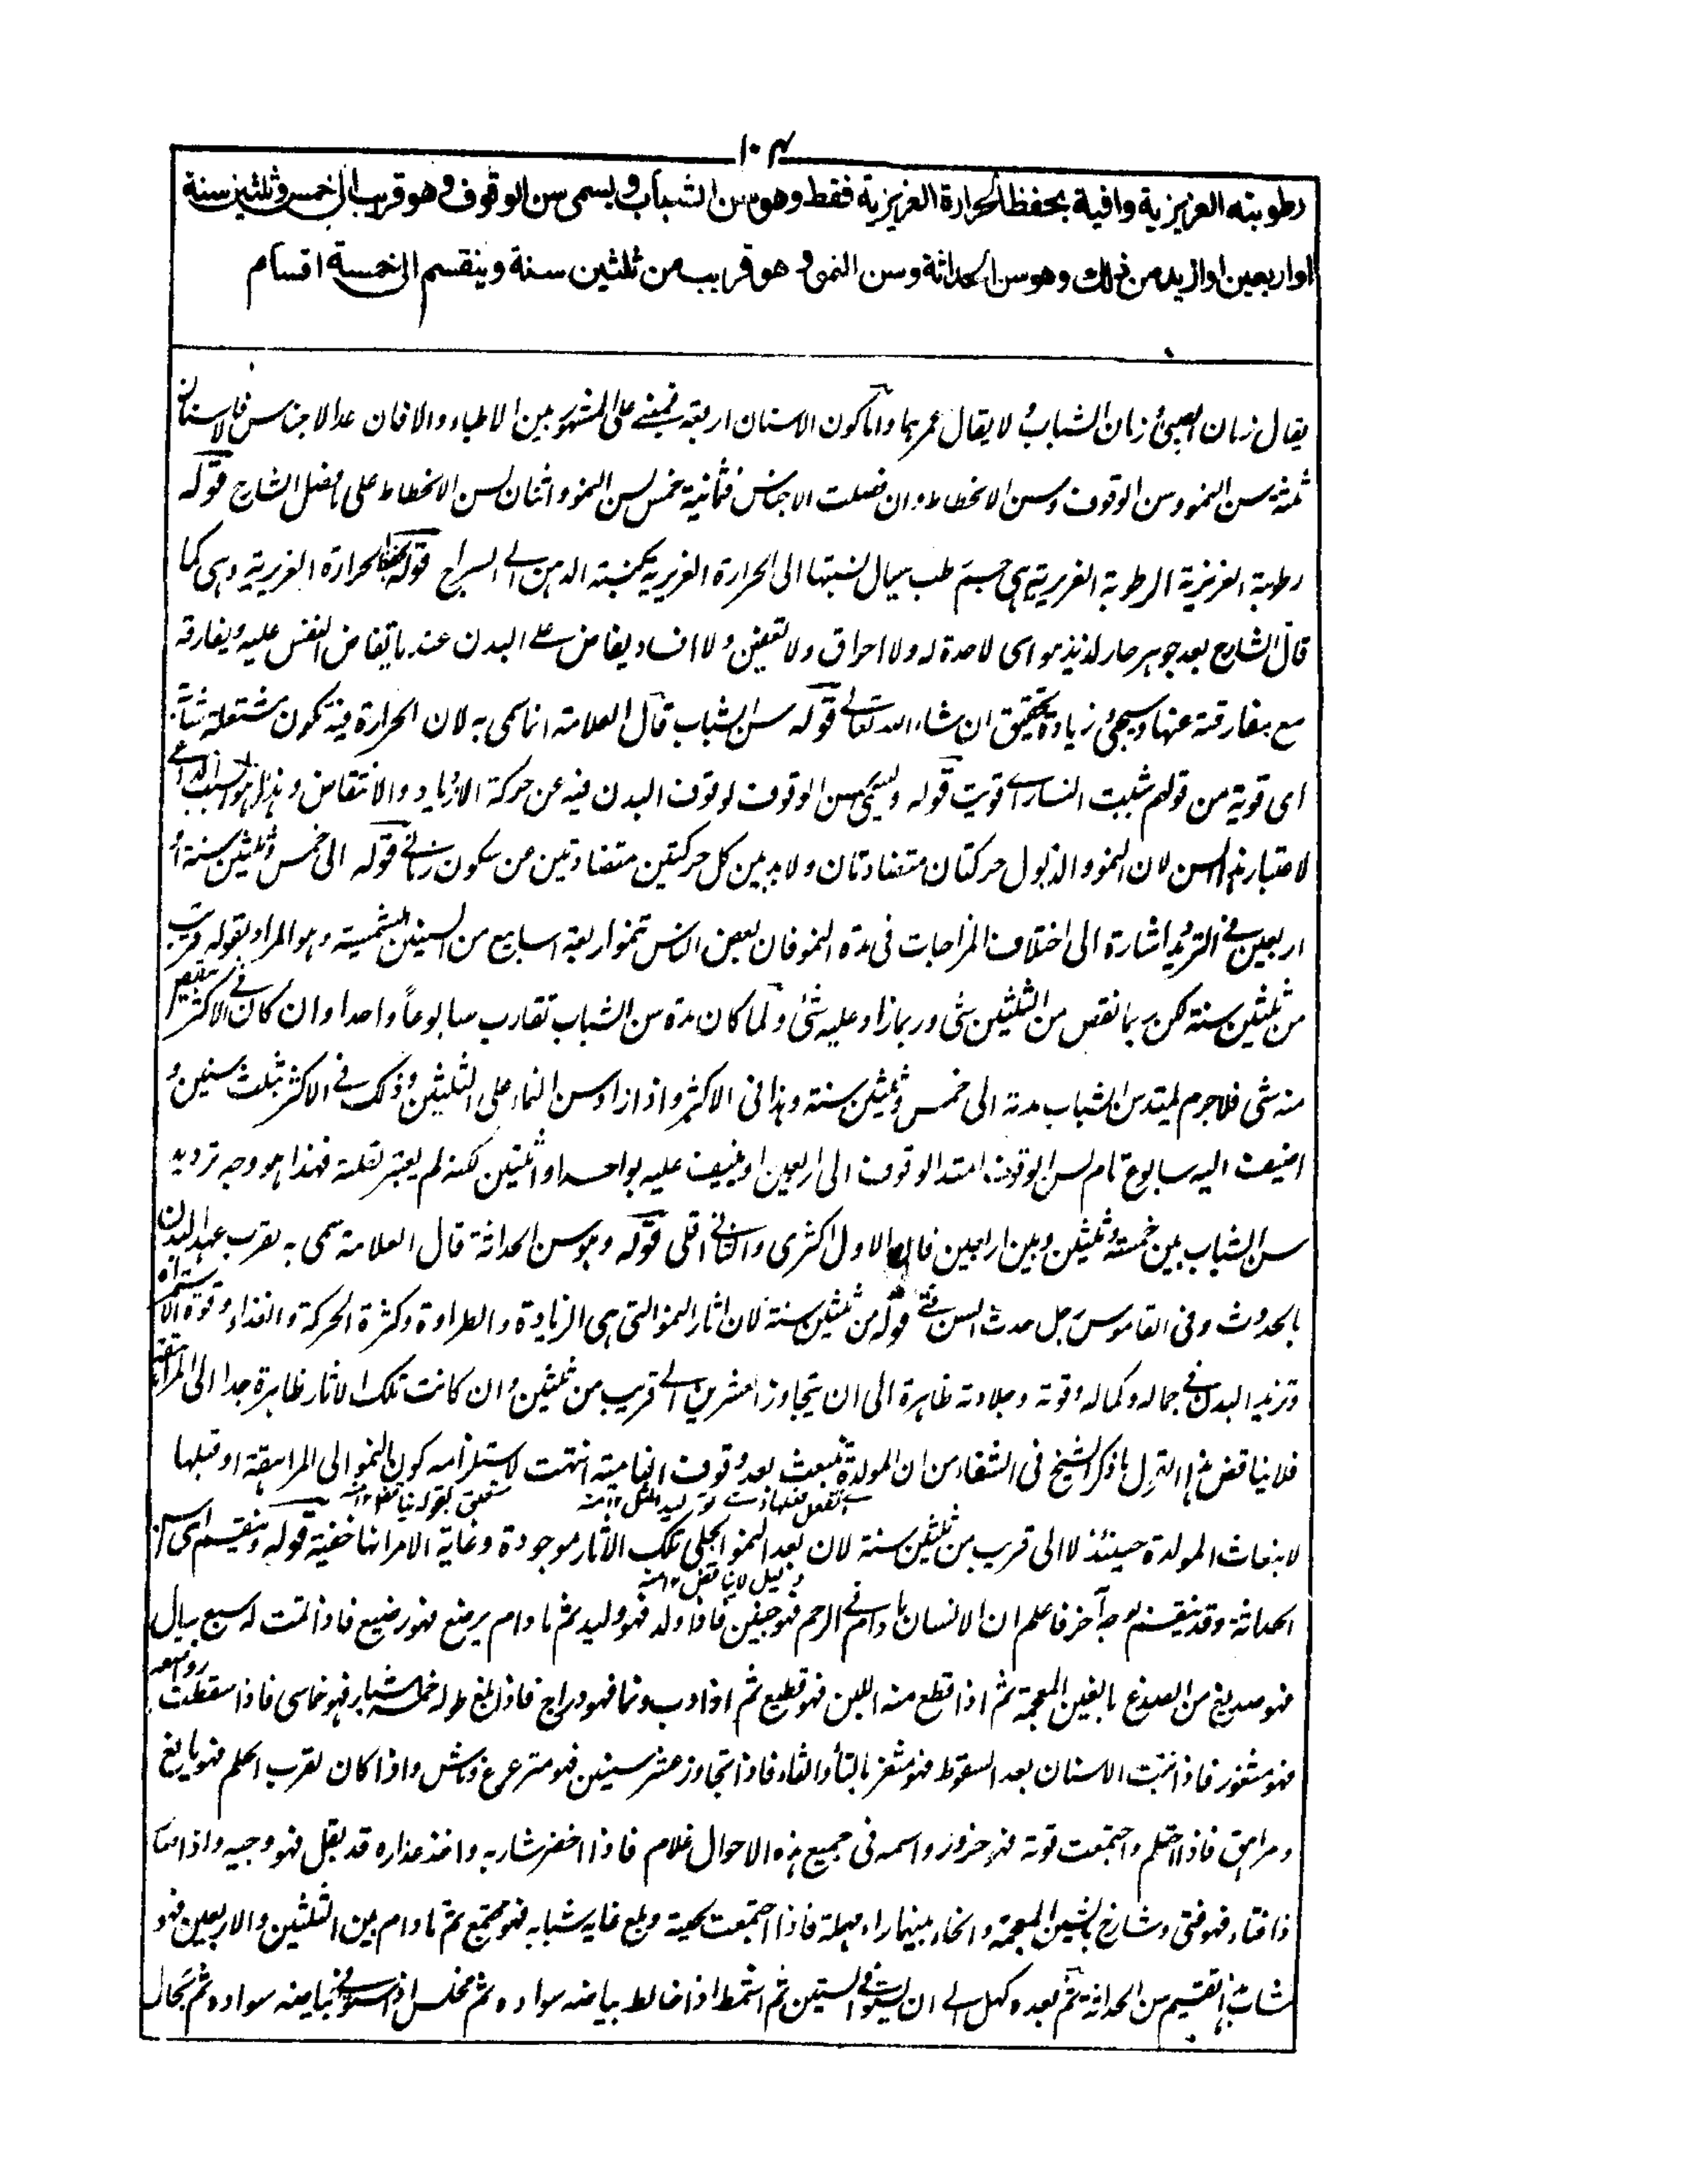 ١٠٤
رطوبته الغريزية وافية بحفظ الحرارة الغريزية فقط وهو سن الشباب ويسمى سن الوقوف وهو قريب الى خمس وثلثين سنة
او اربعين او ازيد من ذلك وهو سن الحداثة وسن النمو وهو قريب من ثلثين سنة وينقسم الى خمسة اقسام
يقال زمان الصبى وزمان الشباب ولا يقال عمرهما واما كون الاسنان اربعة فمبنى على المشهور بين الاطباء والا فان عد الاجناس فالاسنان
ثلثة سن النمو وسن الوقوف وسن الانحطاط وان فصلت الاجناس فثمانية خمس لسن النمو واثنان لسن الانحطاط على ما فصل الشارح قوله
رطوبة الغريزية الرطوبة الغريزية هى جسم رطب سيال نسبتها الى الحرارة الغريزية كنسبة الدهن الى السراج قوله بحفظ الحرارة الغريزية وهى كما
قال الشارح بعد جوهر حار لذيذ هوائى لا حدة له ولا احراق ولا تعفين ولا افساد يفاض على البدن عند ما يفاض النفس عليه ويفارقه
مع مفارقته عنها وسيجئ زيادة تحقيق ان شاء الله تعالى قوله سن الشباب قال العلامة انما سمى به لان الحرارة فيه تكون مشتعلة شابة
اى قوية من قولهم شبت النار اى قويت قوله ويسمى سن الوقوف لوقوف البدن فيه عن حركة الازدياد والانتقاص وهذا هو السبب الداعى
لاعتبار هذا السن لان النمو والذبول حركتان متضادتان ولا بد بين كل حركتين متضادتين من سكون زمانى قوله الى خمس وثلثين سنة او
اربعين فى الترديد اشارة الى اختلاف المزاجات فى مدة النمو فان بعض الناس تنمو اربعة اسابيع من السنين الشمسية وهو المراد بقوله قريب
من ثلثين سنة لكن ربما نقص من الثلثين شئ وربما زاد عليه شئ ولما كان مدة سن الشباب تقارب سابوعا واحدا وان كان فى الاكثر ينقص
منه شئ فلا جرم يمتد سن الشباب مدته الى خمس وثلثين سنة وهذا فى الاكثر واذا زاد سن النماء على الثلثين وذلك فى الاكثر بثلث سنين و
اضيفت اليه سابوع تام لسن الوقوف امتد الوقوف الى اربعين او ينيف عليه بواحد او اثنين لكنه لم يعتبر لقلته فهذا هو وجه ترديد
سن الشباب بين خمسة وثلثين وبين اربعين فان الاول اكثرى والثانى اقلى قوله وهو سن الحداثة قال العلامة سمى به لقرب عهد البدن
بالحدوث وفى القاموس رجل حدث السن فتى قوله من ثلثين سنة لان اثار النمو التى هى الزيادة والطراوة وكثرة الحركة والغذاء وقوة الاستمراء
وتزيد البدن فى جماله وكماله وقوته وجلادته ظاهرة الى ان يتجاوز العشرين الى قريب من ثلثين وان كانت تلك الاثار ظاهرة جدا الى المراهقة
فلا يناقض هذا القول ما ذكر الشيخ فى الشفاء من ان المولدة تنبعث بعد وقوف النامية انتهت لاستلزامه كون النمو الى المراهقة او قبلها
لانبعاث المولدة حينئذ لا الى قريب من ثلثين سنة لان بعد النمو الجلى تلك الاثار موجودة وغاية الامر انها خفية قوله وينقسم اى سن
دليل لا يناقض ١٢ منه
الحداثة وقد ينقسم بوجه آخر فاعلم ان الانسان ما دام فى الرحم فهو جنين فاذا ولد فهو وليد ثم ما دام يرضع فهو رضيع فاذا تمت له سبع ليال
فهو صديغ من الصدغ بالغين المعجمة ثم اذا قطع منه اللبن فهو قطيع ثم اذا دب ونما فهو دراج فاذا بلغ طوله خمسة اشبار فهو خماسى فاذا سقطت رواضعه
فهو مثغور فاذا نبتت الاسنان بعد السقوط فهو مثغر بالتاء والثاء فاذا تجاوز عشر سنين فهو مترعرع وناش واذا كان لقرب الحلم فهو يافع
ومراهق فاذا احتلم واجتمعت قوته فهو حزور واسمه فى جميع هذه الاحوال غلام فاذا اخضر شاربه واخذ عذاره قد بقل فهو وجيه واذا صار
ذا فتاء فهو فتى وشارخ بالشين المعجمة والخاء بينهما راء مهملة فاذا اجتمعت لحيته وبلغ غاية شبابه فهو مجتمع ثم ما دام بين الثلثين والاربعين فهو
شاب هذا تقسيم سن الحداثة ثم بعده كهل الى ان يستوفى الستين ثم اشمط اذا خالط بياضه سواده ثم مخلس اذا استوفى بياضه سواده ثم بجال